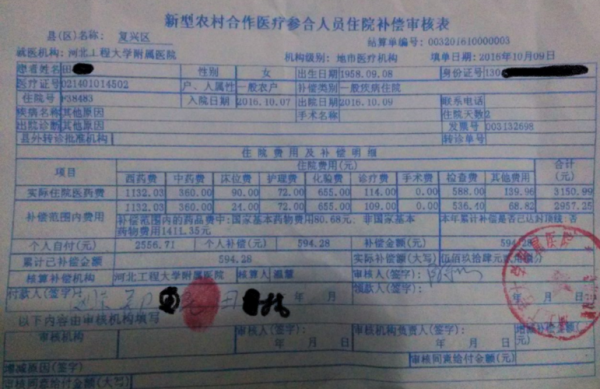 新型农村合作医疗参合人员住院补偿审核表
县(区)名称: 复兴区 结算单编号: 003201610000003
诚医机构: 河北工程大学附属医院 机构级别: 地市医疗机构 填单日期: 2016年10月09日
患者姓名 性别 女 出生日期 1958.09.08 身份证号 130
医疗证号 021401014502 户、人属性 一般农户 补偿类别 一般疾病住院
住院号 P38483 入院日期 2016.10.07 出院日期 2016.10.09 联系电话
疾病名称 其他原因 手术名称 住院天数 2
出院诊断 其他原因 发票号 003132698
县外转诊批准机构 转诊单号
住院费用及补偿明细
项目 住院费用(元) 合计(元)
西药费 中药费 床位费 护理费 化验费 诊疗费 手术费 检查费 其他费用
实际住院医药费 1132.03 360.00 90.00 72.00 655.00 114.00 0.00 588.00 139.96 3150.99
补偿范围内费用 1132.03 360.00 24.00 72.00 655.00 109.00 0.00 536.40 68.82 2957.25
补偿范围内的药品费中:国家基本药物费用80.68元、非国家基本药物费用1411.35元 本年累计补偿是否已达封顶线:否
个人自付(元) 2556.71 个人补偿(元) 594.28 补偿金额(元) 594.28
累计已补偿金额(元) 594.28 实际补偿金额(大写) 伍佰玖拾肆元
核算补偿机构 河北工程大学附属医院 核算人 审核人(签字):
付款人(签字) 领款人(签字):
以下内容由审核机构填写
审核机构 审核人(签字) 审核机构负责人(签字) 增减补偿金额(元)
增减原因(签字) 审核同意给付金额(元)
审核同意给付金额(大写)